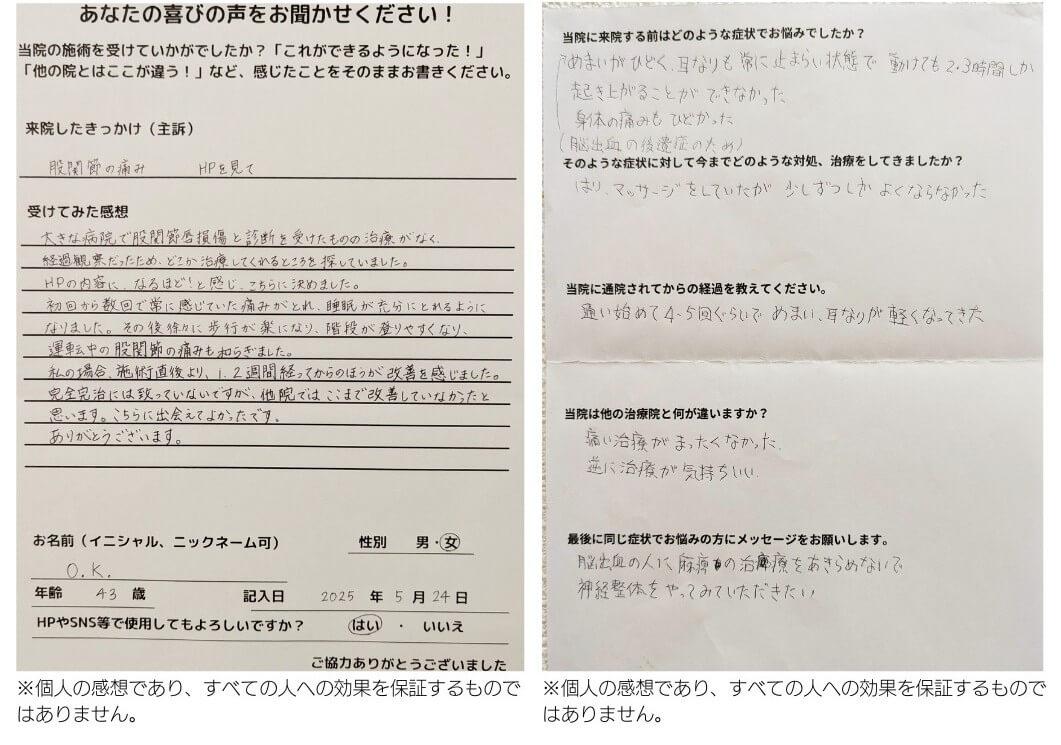 あなたの喜びの声をお聞かせください！
当院の施術を受けていかがでしたか？「これができるようになった！」
「他の院とはここが違う！」など、感じたことをそのままお書きください。
来院したきっかけ（主訴）
股関節の痛み　HPを見て
受けてみた感想
大きな病院で股関節唇損傷と診断を受けたものの治療がなく、
経過観察だったため、どこか治療してくれるところを探していました。
HPの内容に、なるほど！と感じ、こちらに決めました。
初回から数回で常に感じていた痛みがとれ、睡眠が充分にとれるように
なりました。その後徐々に歩行が楽になり、階段が登りやすくなり、
運転中の股関節の痛みも和らぎました。
私の場合、施術直後より、1.2週間経ってからのほうが改善を感じました。
完全完治には致っていないですが、他院ではここまで改善していなかったと
思います。こちらに出会えてよかったです。
ありがとうございます。
お名前（イニシャル、ニックネーム可）　性別　男・女
O.K.
年齢　43　歳　記入日　2025　年　5　月　24　日
HPやSNS等で使用してもよろしいですか？　はい　・　いいえ
ご協力ありがとうございました
※個人の感想であり、すべての人への効果を保証するもので
はありません。
当院に来院する前はどのような症状でお悩みでしたか？
めまいがひどく、耳なりも常に止まらい状態で 動けても2.3時間しか
起き上がることができなかった
身体の痛みもひどかった
（脳出血の後遺症のため）
そのような症状に対して今までどのような対処、治療をしてきましたか？
はり、マッサージをしていたが 少しずつしかよくならなかった
当院に通院されてからの経過を教えてください。
通い始めて4-5回ぐらいで めまい、耳なりが軽くなってきた
当院は他の治療院と何が違いますか？
痛い治療がまったくなかった。
逆に治療が気持ちいい。
最後に同じ症状でお悩みの方にメッセージをお願いします。
脳出血の人に 麻痺の治療をあきらめないで
神経整体をやってみていただきたい
※個人の感想であり、すべての人への効果を保証するもので
はありません。